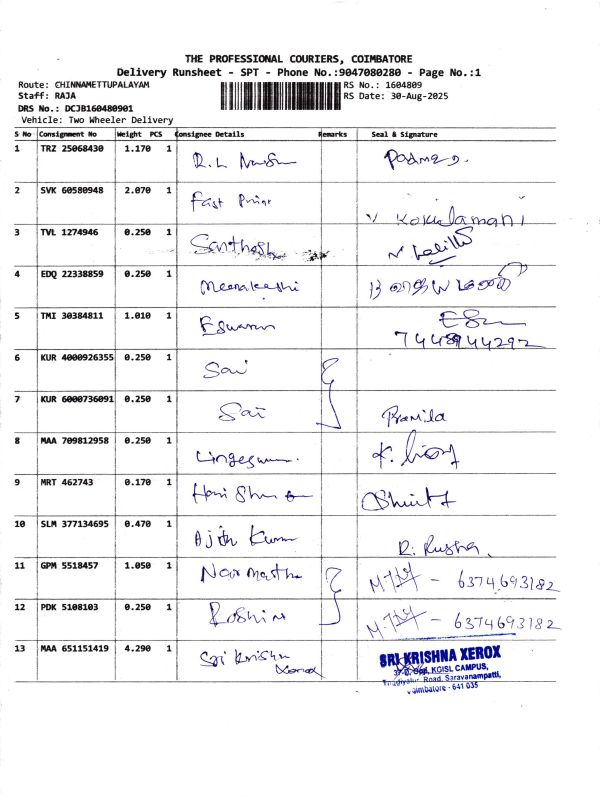 THE PROFESSIONAL COURIERS, COIMBATORE
Delivery Runsheet - SPT - Phone No.:9047080280 - Page No.:1
Route: CHINNAMETTUPALAYAM RS No.: 1604809
Staff: RAJA RS Date: 30-Aug-2025
DRS No.: DCJB160480901
Vehicle: Two Wheeler Delivery
S No Consignment No Weight PCS Consignee Details Remarks Seal & Signature
1 TRZ 25068430 1.170 1 R.L
2 SVK 60580948 2.070 1 Fast Print Kokilamani
3 TVL 1274946 0.250 1 Santhosh
4 EDQ 22338859 0.250 1 Meenakshi
5 TMI 30384811 1.010 1 Eswaran
7448944292
6 KUR 4000926355 0.250 1 Sai
7 KUR 6000736091 0.250 1 Sai Pramila
8 MAA 709812958 0.250 1 K.
9 MRT 462743 0.170 1
10 SLM 377134695 0.470 1 Ajith Kumar R.
11 GPM 5518457 1.050 1 - 6374693182
12 PDK 5108103 0.250 1 Roshini - 6374693182
13 MAA 651151419 4.290 1 Sri Krishna
Xerox
SRI KRISHNA XEROX
Opp, KGISL CAMPUS,
Road, Saravanampatti,
Coimbatore - 641 035